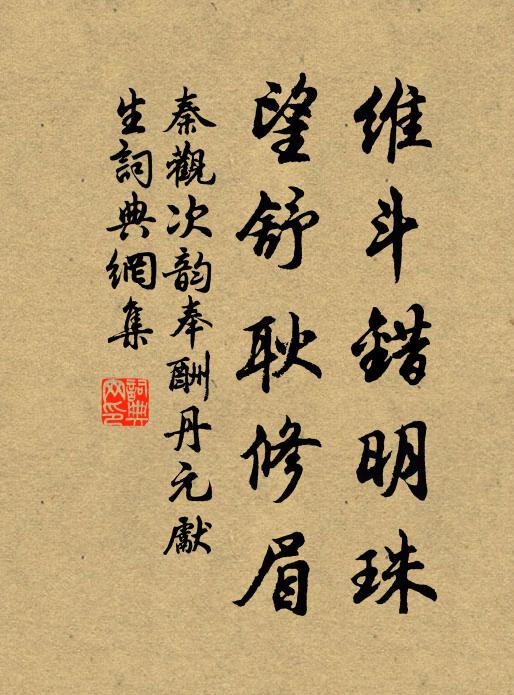 維斗錯明珠
望舒耿修眉
秦觀次韵奉酬丹元獻
生詞典網集
詞典